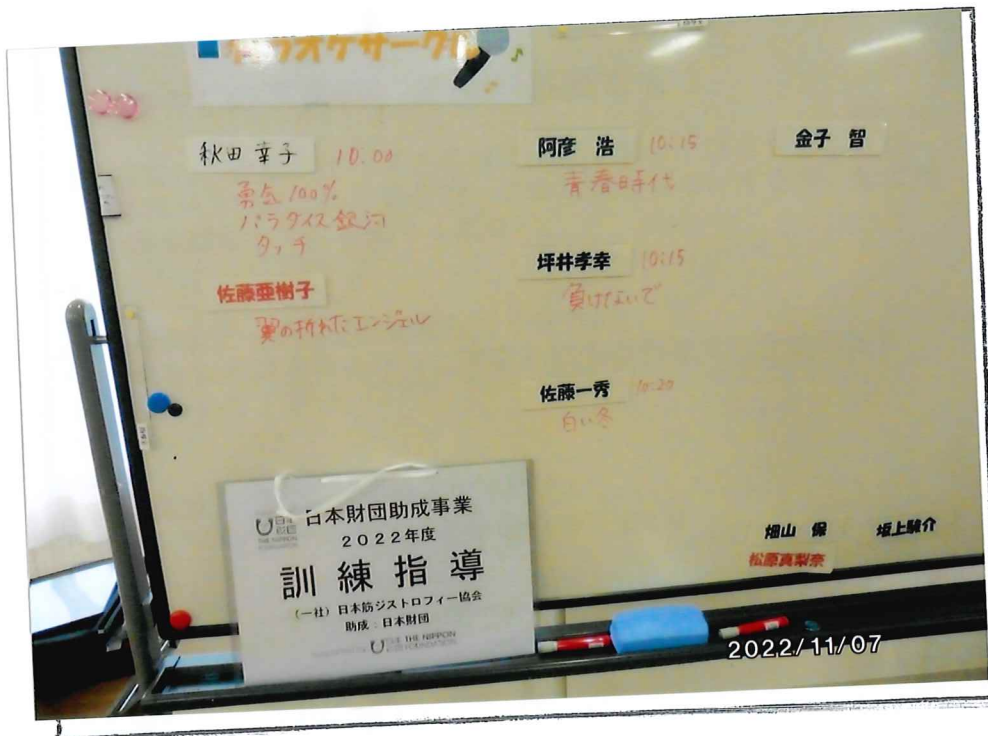 カラオケサークル
秋田 幸子 10:00
勇気100%
パラダイス銀河
タッチ
佐藤亜樹子
翼の折れたエンジェル
阿彦 浩 10:15
青春時代
坪井孝幸 10:15
負けないで
佐藤一秀 10:20
白い冬
金子 智
畑山 保
坂上駿介
松原真梨奈
日本財団助成事業
2022年度
訓練指導
(一社)日本筋ジストロフィー協会
助成:日本財団
THE NIPPON
FOUNDATION
2022/11/07